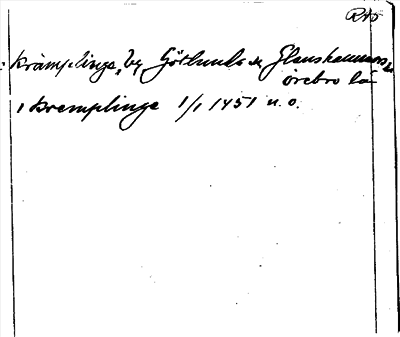 RA5
Krämplinge, by, Götlunda sn, Glanshammars hd
örebro län
i Kremplinge 1/1 1451 n. o.